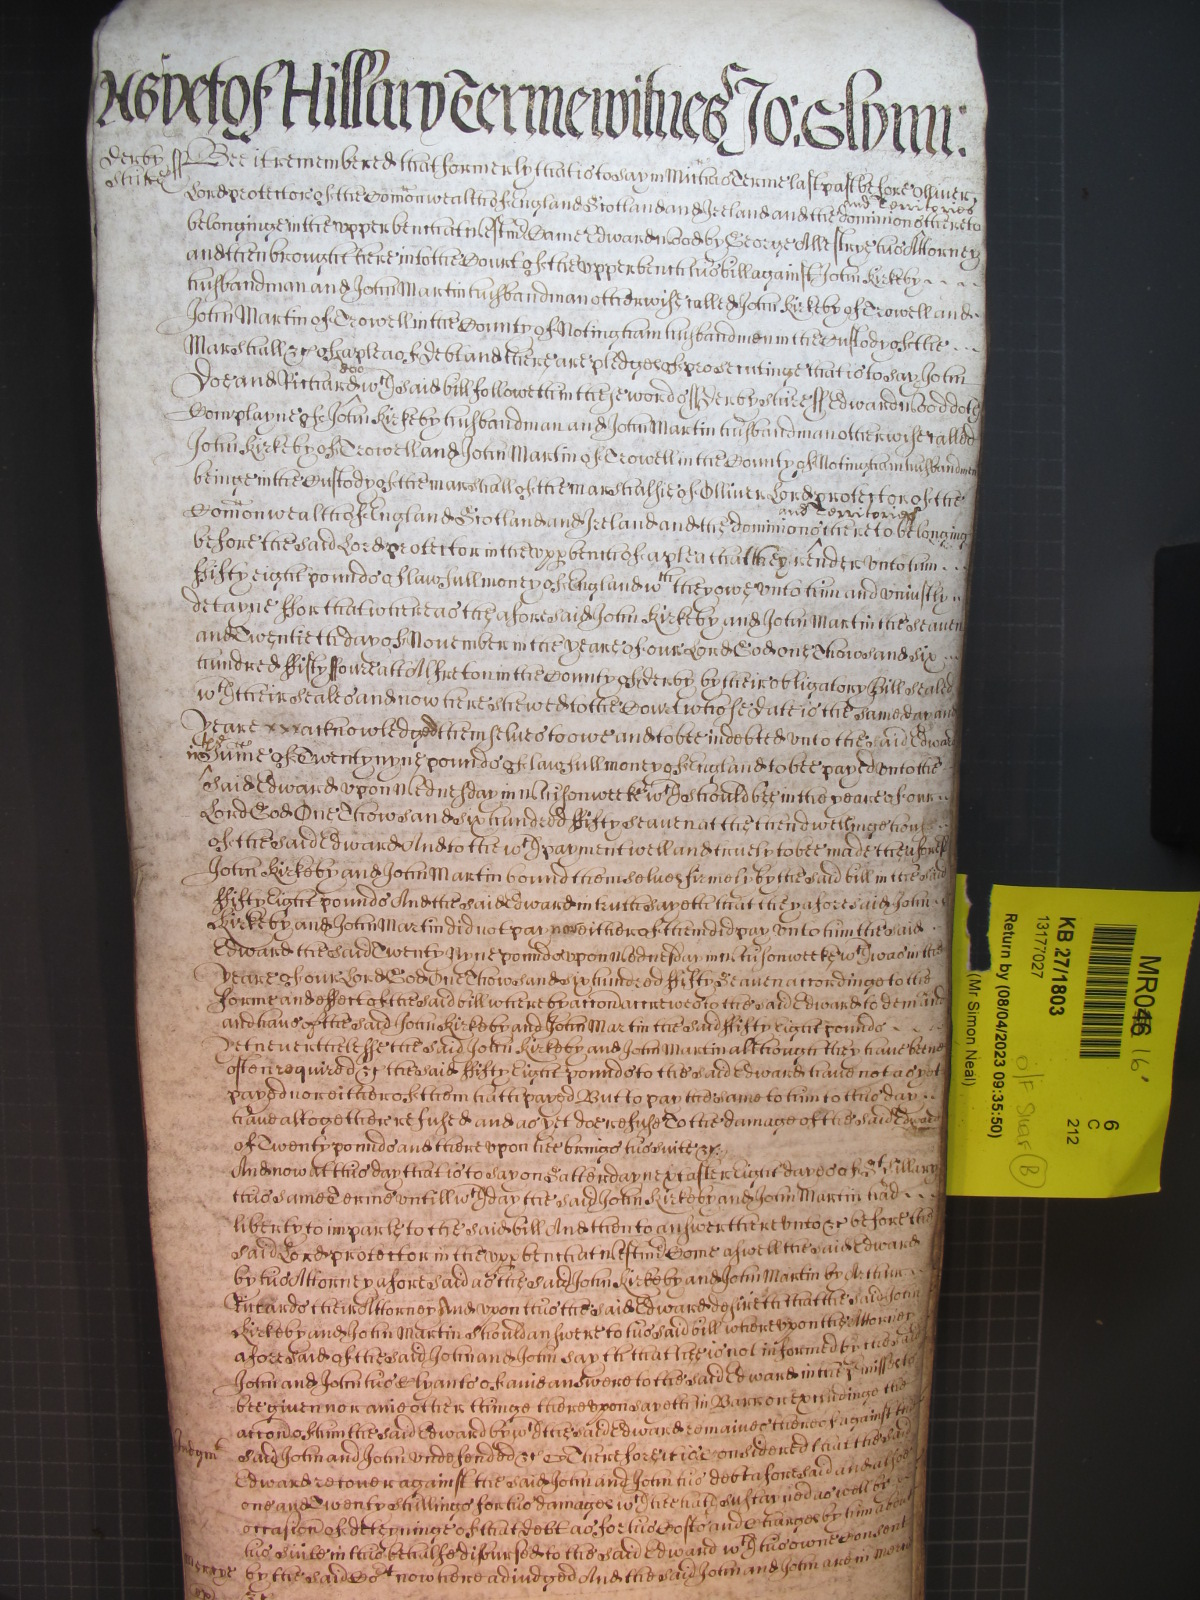 As yet of Hillary Terme witnes Jo: Glynn:
Derby shire ss Bee it remembered that formerly that is to say in Mich̄as Terme last past before Olliver
Lord protector of the Com̄onwealth of England Scotland and Ireland and the dominions and Territories thereto
belonginge in the upper bench at Westm̄ Came Edward Wood by George Allestrye his Attorney
and then brought here into the Court of the upper bench his bill against John Kirkeby
husbandman and John Martin husbandman otherwise called John Kirkeby of Trowell and
John Martin of Trowell in the County of Notingham husbandmen in the Custody of the
Marshall &c of a plea of debt and there are pledges of prosecutinge that is to say John
Doe and Richard Roo wch said bill followeth in these words ss Derby shire ss Edward Wood doth
Complayne of John Kirkeby husbandman and John Martin husbandman otherwise called
John Kirkeby of Trowell and John Martin of Trowell in the County of Notingham husbandmen
beinge in the Custody of the marshall of the marshalsie of Olliver Lord protector of the
Com̄onwealth of England Scotland and Ireland and the dominions and Territories thereto belonging
before the said Lord protector in the upper bench of a plea that they render unto him
ffifty eight pounds of lawfull money of England wch they owe unto him and uniustly
detayne ffor that whereas the aforesaid John Kirkeby and John Martin the seaven
and Twentieth day of November in the yeare of our Lord God one Thowsand six
hundred ffifty ffoure att Alfreton in the County of derby by their obligatory Bill sealed
wth their seales and now here shewed to the Court whose date is the same day and
yeare acknowledged themselves to owe and to bee indebted unto the said Edward
in the sume of Twenty nyne pounds of lawfull money of England to bee payed unto the
said Edward upon Wednesday in Whitson weeke wch should bee in the yeare of our
Lord God One Thowsand six hundred ffifty seaven at the then dwellinge house
of the said Edward And to the wch payment well and truely to bee made the aforesd
John Kirkeby and John Martin bound themselves firmely by the said bill in the said
ffifty Eight pounds And the said Edward in truth sayeth that the aforesaid John
Kirkeby and John Martin did not pay nor either of them did pay unto him the said
Edward the said Twenty Nyne pounds upon Wednesday in Whitson weeke wch was in the
yeare of our Lord God One Thowsand six hundred ffifty Seaven accordinge to the
forme and effect of the said bill whereby accion accrewed to the said Edward to demand
and have of the said John Kirkeby and John Martin the said ffifty eight pounds
yet neverthelesse the said John Kirkeby and John Martin although they have beene
often required &c the said ffifty Eight pounds to the said Edward have not as yet
payed nor either of them hath payed But to pay the same to him to this day
have altogether refused and as yet doe refuse To the damage of the said Edward
of Twenty pounds and thereupon hee brings his suite &c
And now at this day that is to say on Satterday next after Eight dayes of St Hillary
this same Terme untill wch day the said John Kirkeby and John Martin had
liberty to imparle to the said bill And then to answer thereunto &c before the
said Lord protector in the upper bench at Westm̄ Come aswell the said Edward
by his Attorney aforesaid as the said John Kirkeby and John Martin by Arthur
Ricards their Attorney And upon this the said Edward desireth that the said John
Kirkeby and John Martin should answere to his said bill whereupon the Attorney
aforesaid of the said John and John sayth that hee is not informed by the said
John and John his Clyants of anie answere to the said Edward in the p̄misses to
bee given nor anie other thinge thereupon sayeth in Barr or excludinge the
accon of him the said Edward by wch the said Edward remaines thereof against the
Judgmt said John and John undefended &c Therefore it is Considered that the said
Edward recover against the said John and John his debt aforesaid and alsoe
one and Twenty shillings for his damages wch hee hath sustayned as well by
occasion of deteyninge of that debt as for his Costs and Charges by him about
his suite in this behalfe disbursed to the said Edward wth his owne Consent
Mercye by the said Cort now here adjudged And the said John and John are in mercy
&c
MR046
16'
KB 27/1803
13177027
Return by (08/04/2023 09:35:50)
(Mr Simon Neal)
6
C
212